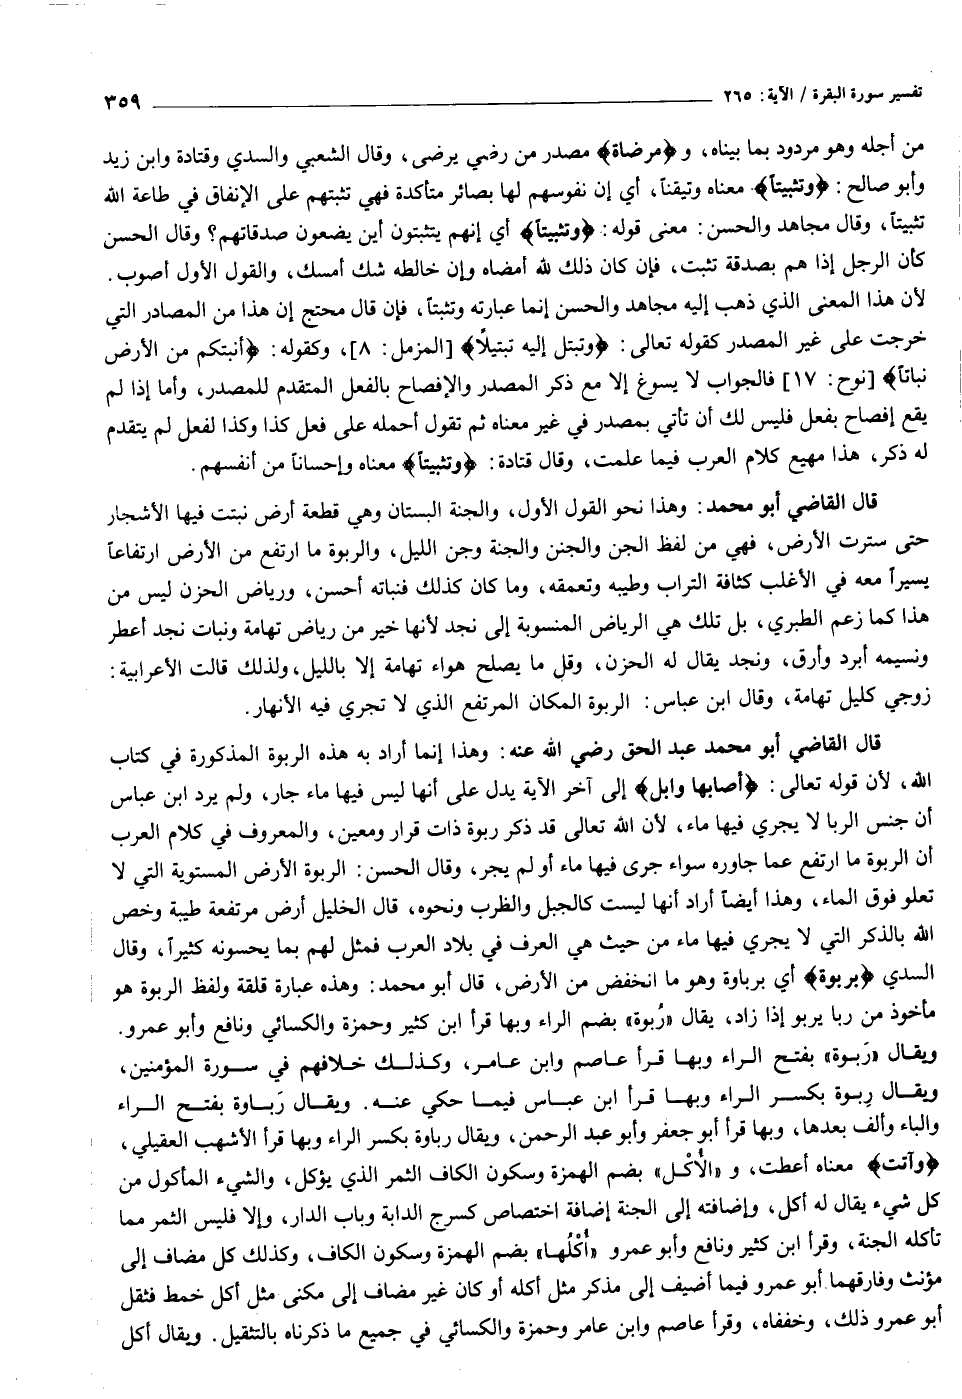 تفسير سورة البقرة / الآية: ٢٦٥ ــــــــ ٣٥٩
من أجله وهو مردود بما بيناه، و ﴿مرضاة﴾ مصدر من رضي يرضى، وقال الشعبي والسدي وقتادة وابن زيد
وأبو صالح: ﴿وتثبيتاً﴾ معناه وتيقناً، أي إن نفوسهم لها بصائر متأكدة فهي تثبتهم على الإنفاق في طاعة الله
تثبيتاً، وقال مجاهد والحسن: معنى قوله: ﴿وتثبيتاً﴾ أي إنهم يتثبتون أين يضعون صدقاتهم؟ وقال الحسن
كأن الرجل إذا هم بصدقة تثبت، فإن كان ذلك لله أمضاه وإن خالطه شك أمسك، والقول الأول أصوب.
لأن هذا المعنى الذي ذهب إليه مجاهد والحسن إنما عبارته وتثبتاً، فإن قال محتج إن هذا من المصادر التي
خرجت على غير المصدر كقوله تعالى: ﴿وتبتل إليه تبتيلًا﴾ [المزمل: ٨]، وكقوله: ﴿أنبتكم من الأرض
نباتاً﴾ [نوح: ١٧] فالجواب لا يسوغ إلا مع ذكر المصدر والإفصاح بالفعل المتقدم للمصدر، وأما إذا لم
يقع إفصاح بفعل فليس لك أن تأتي بمصدر في غير معناه ثم تقول أحمله على فعل كذا وكذا لفعل لم يتقدم
له ذكر، هذا مهيع كلام العرب فيما علمت، وقال قتادة: ﴿وتثبيتاً﴾ معناه وإحساناً من أنفسهم.
قال القاضي أبو محمد: وهذا نحو القول الأول، والجنة البستان وهي قطعة أرض نبتت فيها الأشجار
حتى سترت الأرض، فهي من لفظ الجن والجنن والجنة وجن الليل، والربوة ما ارتفع من الأرض ارتفاعاً
يسيراً معه في الأغلب كثافة التراب وطيبه وتعمقه، وما كان كذلك فنباته أحسن، ورياض الحزن ليس من
هذا كما زعم الطبري، بل تلك هي الرياض المنسوبة إلى نجد لأنها خير من رياض تهامة ونبات نجد أعطر
ونسيمه أبرد وأرق، ونجد يقال له الحزن، وقل ما يصلح هواء تهامة إلا بالليل، ولذلك قالت الأعرابية:
زوجي كليل تهامة، وقال ابن عباس: الربوة المكان المرتفع الذي لا تجري فيه الأنهار.
قال القاضي أبو محمد عبد الحق رضي الله عنه: وهذا إنما أراد به هذه الربوة المذكورة في كتاب
الله، لأن قوله تعالى: ﴿أصابها وابل﴾ إلى آخر الآية يدل على أنها ليس فيها ماء جار، ولم يرد ابن عباس
أن جنس الربا لا يجري فيها ماء، لأن الله تعالى قد ذكر ربوة ذات قرار ومعين، والمعروف في كلام العرب
أن الربوة ما ارتفع عما جاوره سواء جرى فيها ماء أو لم يجر، وقال الحسن: الربوة الأرض المستوية التي لا
تعلو فوق الماء، وهذا أيضاً أراد أنها ليست كالجبل والظرب ونحوه، قال الخليل أرض مرتفعة طيبة وخص
الله بالذكر التي لا يجري فيها ماء من حيث هي العرف في بلاد العرب فمثل لهم بما يحسونه كثيراً، وقال
السدي ﴿بربوة﴾ أي برباوة وهو ما انخفض من الأرض، قال أبو محمد: وهذه عبارة قلقة ولفظ الربوة هو
مأخوذ من ربا يربو إذا زاد، يقال «رُبوة» بضم الراء وبها قرأ ابن كثير وحمزة والكسائي ونافع وأبو عمرو.
ويقال «رَبوة» بفتح الراء وبها قرأ عاصم وابن عامر، وكذلك خلافهم في سورة المؤمنين،
ويقال رِبوة بكسر الراء وبها قرأ ابن عباس فيما حكي عنه. ويقال رَباوة بفتح الراء
والباء وألف بعدها، وبها قرأ أبو جعفر وأبو عبد الرحمن، ويقال رباوة بكسر الراء وبها قرأ الأشهب العقيلي،
﴿وآتت﴾ معناه أعطت، و «الأُكْل» بضم الهمزة وسكون الكاف الثمر الذي يؤكل، والشيء المأكول من
كل شيء يقال له أكل، وإضافته إلى الجنة إضافة اختصاص كسرج الدابة وباب الدار، وإلا فليس الثمر مما
تأكله الجنة، وقرأ ابن كثير ونافع وأبو عمرو «أُكْلُها» بضم الهمزة وسكون الكاف، وكذلك كل مضاف إلى
مؤنث وفارقهما أبو عمرو فيما أضيف إلى مذكر مثل أكله أو كان غير مضاف إلى مكنى مثل أكل خمط فثقل
أبو عمرو ذلك، وخففاه، وقرأ عاصم وابن عامر وحمزة والكسائي في جميع ما ذكرناه بالتثقيل. ويقال أكل